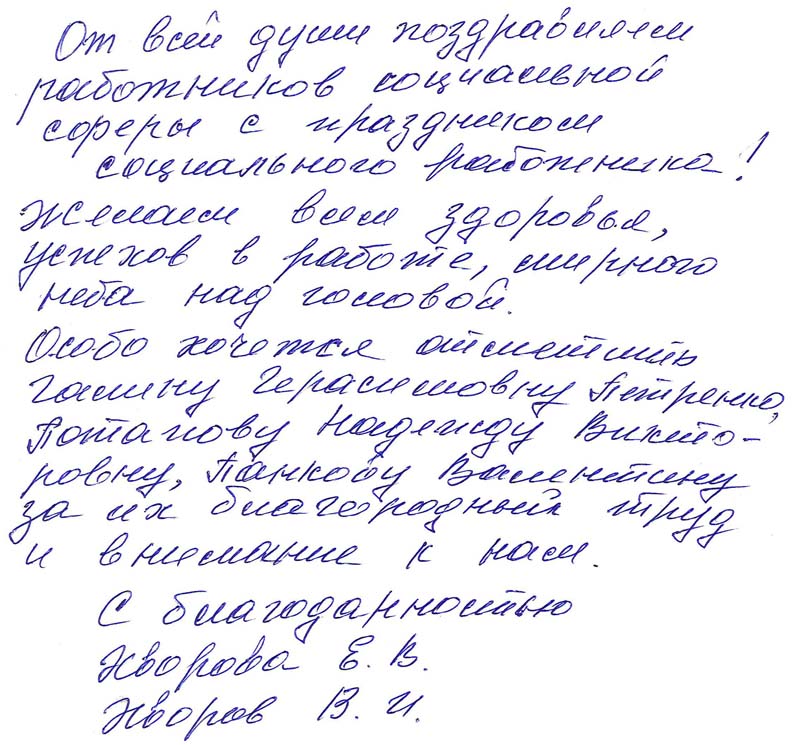 От всей души поздравляем
работников социальной
сферы с праздником
социального работника!
Желаем всем здоровья,
успехов в работе, мирного
неба над головой.
Особо хочется отметить
Галину Герасимовну Петренко,
Потапову Надежду Викто-
ровну, Панкову Валентину
за их благородный труд
и внимание к нам.
С благодарностью
Хворова Е. В.
Хворов В. И.